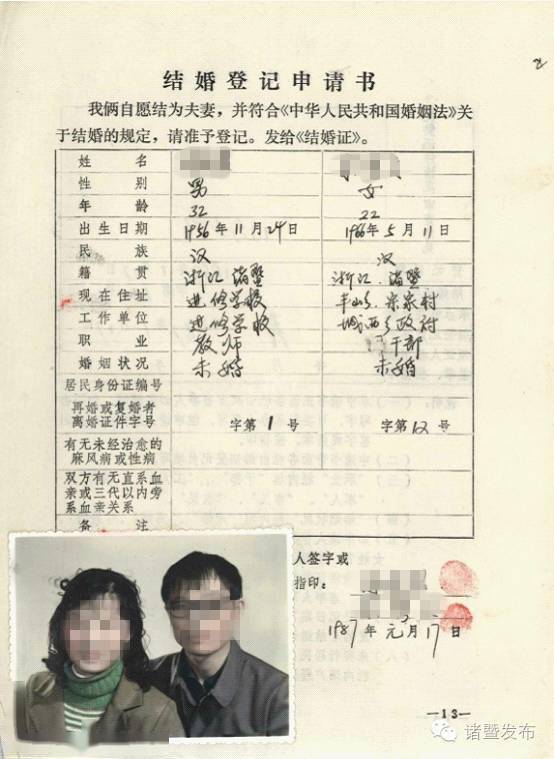 结婚登记申请书
我俩自愿结为夫妻，并符合《中华人民共和国婚姻法》关
于结婚的规定，请准予登记。发给《结婚证》。
姓名
性别 男 女
年龄 32 22
出生日期 1956年11月24日 1966年5月11日
民族 汉 汉
籍贯 浙江诸暨 浙江诸暨
现在住址 进修学校
工作单位 进修学校 城西乡政府
职业 教师 干部
婚姻状况 未婚 未婚
居民身份证编号
再婚或复婚者
离婚证件字号 字第1号 字第12号
有无未经治愈的
麻风病或性病
双方有无直系血
亲或三代以内旁
系血亲关系
备注
人签字或
指印：
1987年元月17日
—13—
诸暨发布